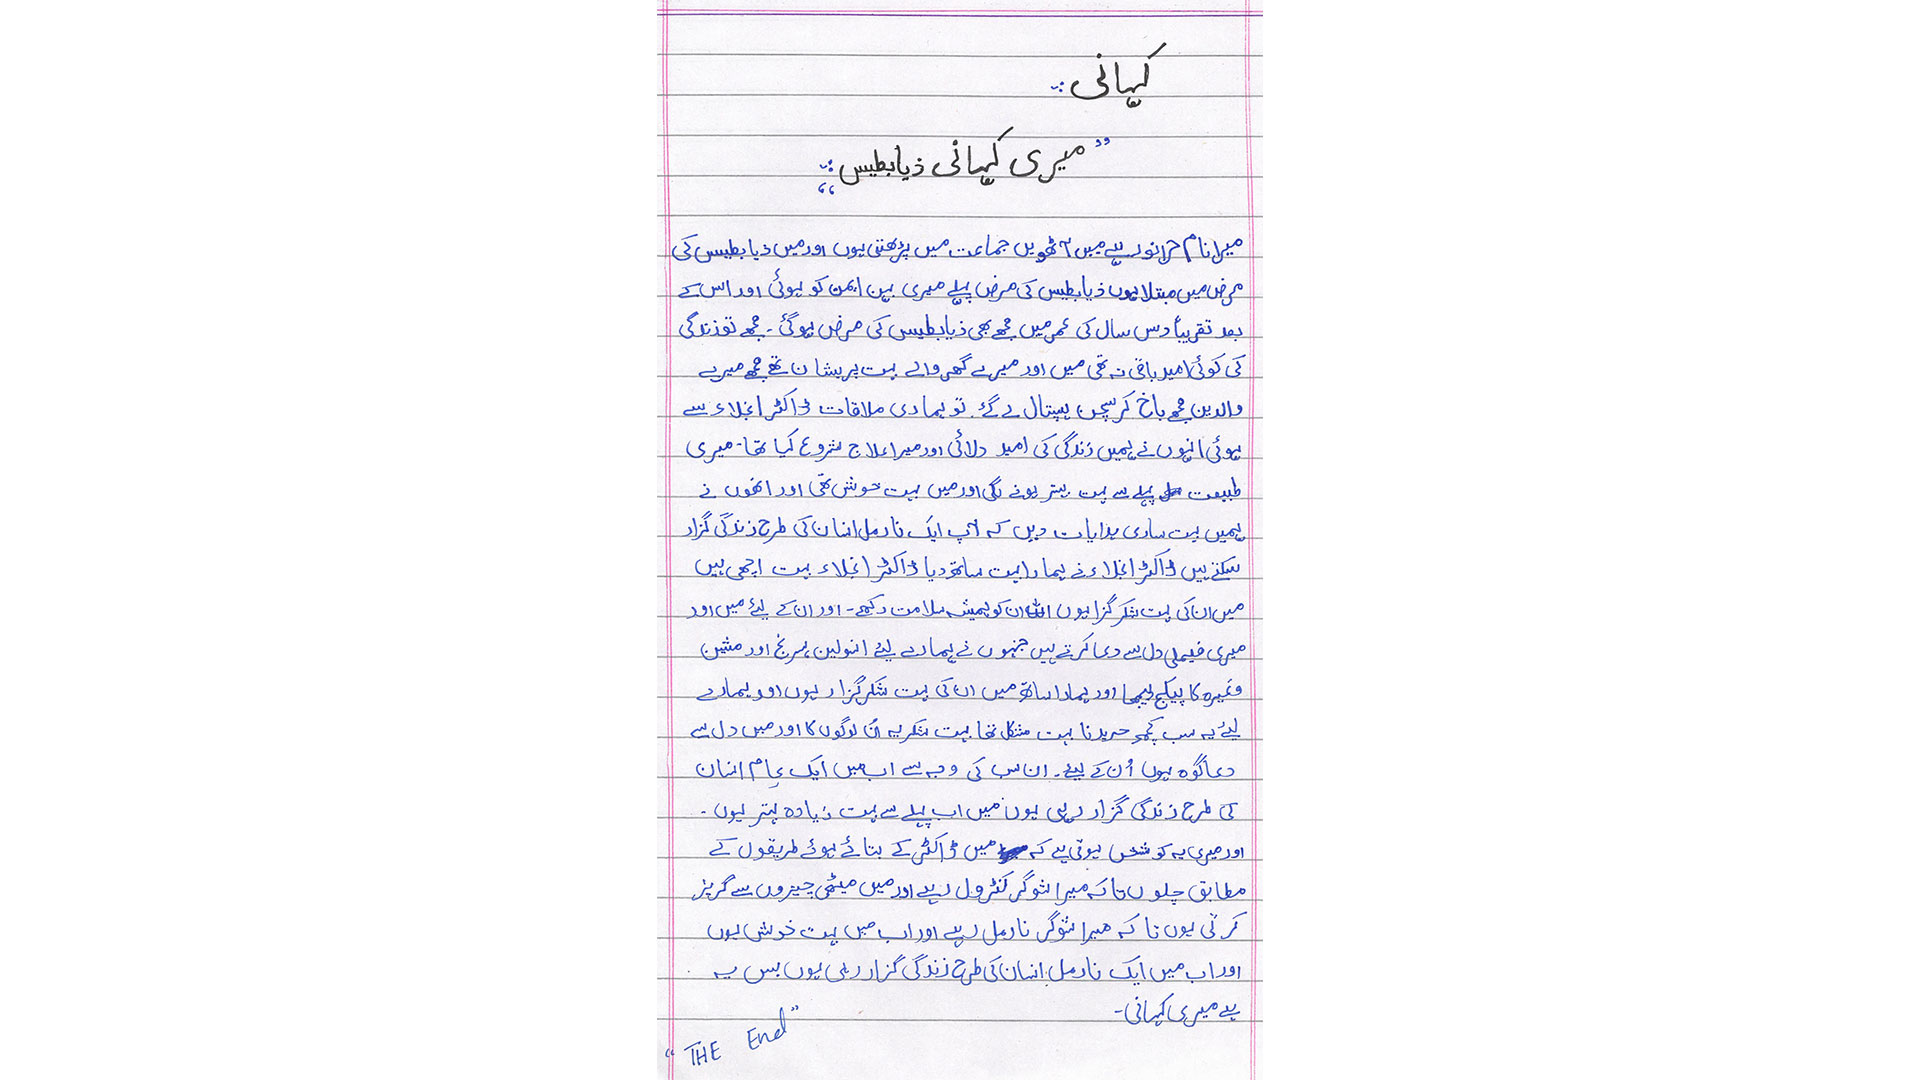 کہانی :۔
"میری کہانی ذیابطیس :۔"
میرا نام حرا نور ہے میں ۸ٹھویں جماعت میں پڑھتی ہوں اور میں ذیابطیس کی
مرض میں مبتلا ہوں ذیابطیس کی مرض پہلے میری بہن ایمن کو ہوئی اور اس کے
بعد تقریباً دس سال کی عمر میں مجھے بھی ذیابطیس کی مرض ہوگئی۔ مجھے تو زندگی
کی کوئی امید باقی نہ تھی میں اور میرے گھر والے بہت پریشان تھے مجھے میرے
والدین مجھے باخ کرسچن ہسپتال لے گئے۔ تو ہماری ملاقات ڈاکٹر انجلاء سے
ہوئی انہوں نے ہمیں زندگی کی امید دلائی اور میرا علاج شروع کیا تھا۔ میری
طبیعت پہلے سے بہت بہتر ہونے لگی اور میں بہت خوش تھی اور انھوں نے
ہمیں بہت ساری ہدایات دیں کہ آپ ایک نارمل انسان کی طرح زندگی گزار
سکتے ہیں ڈاکٹر انجلاء نے ہمارا بہت ساتھ دیا ڈاکٹر انجلاء بہت اچھی ہیں
میں ان کی بہت شکر گزا ہوں اللہ ان کو ہمیشہ سلامت رکھے۔ اور ان کے لیئے میں اور
میری فیملی دل سے دعا کرتے ہیں جنہوں نے ہمارے لیئے انسولین، سرنج اور مشین
وغیرہ کا پیکج بھیجا اور ہمارا ساتھ میں ان کی بہت شکر گزار ہوں اور ہمارے
لیئے یہ سب کچھ خریدنا بہت مشکل تھا بہت شکریہ اُن لوگوں کا اور میں دل سے
دعا گوہ ہوں اُن کے لیئے۔ ان سب کی وجہ سے اب میں ایک عام انسان
کی طرح زندگی گزار رہی ہوں میں اب پہلے سے بہت زیادہ بہتر ہوں۔
اور میری یہ کوشش ہوتی ہے کہ میں ڈاکٹر کے بتائے ہوئے طریقوں کے
مطابق چلوں تاکہ میرا شوگر کنٹرول رہے اور میں میٹھی چیزوں سے گریز
کرتی ہوں تاکہ میرا شوگر نارمل رہے اور اب میں بہت خوش ہوں
اور اب میں ایک نارمل انسان کی طرح زندگی گزار رہی ہوں بس یہ
ہے میری کہانی۔
"THE End"